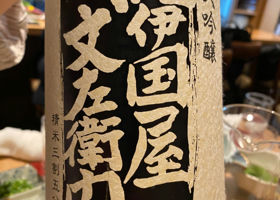 吟醸
伊国屋
文左衛門
精米三割五分